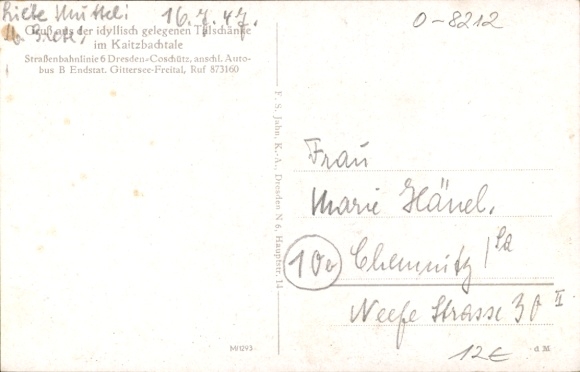 Liebe Muttel! 16.7.47.
u. Grete,
Gruß aus der idyllisch gelegenen Talschänke
im Kaitzbachtale
Straßenbahnlinie 6 Dresden-Coschütz, anschl. Auto-
bus B Endstat. Gittersee-Freital, Ruf 873160
O-8212
F. S. Jahn, K.-A., Dresden N 6, Hauptstr. 14
Frau
Marie Hänel,
10b Chemnitz /Sa
Neefe Strasse 30 II
M/I293
d M.
12€